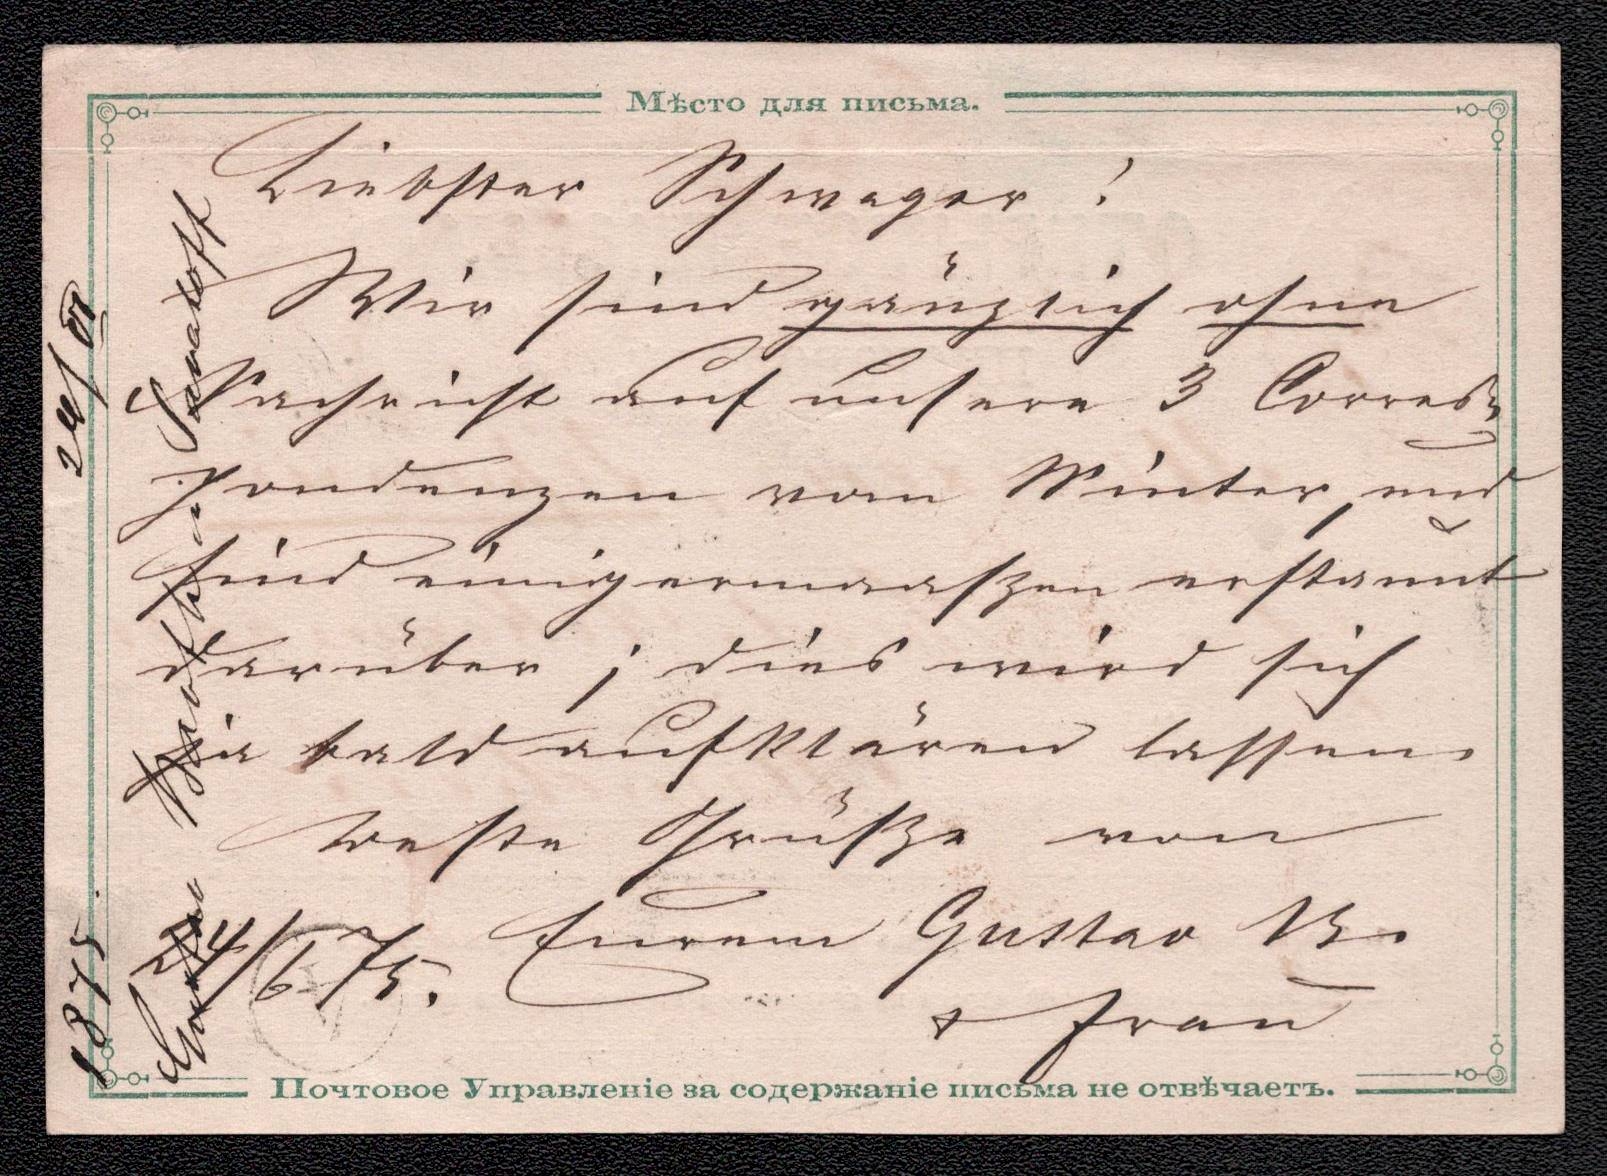 Мѣсто для письма.
Liebster Schwager!
Wir sind gänzlich ohne
Nachricht auf unsere 3 Corres-
pondenzen vom Winter, und
sind einigermaaszen erstaunt
darüber; dies wird sich
ja bald aufklären lassen.
Beste Grüsze von
24/6 75. Eurem Gustav B.
+ Frau
Почтовое Управленіе за содержаніе письма не отвѣчаетъ.
1875. 24/VI
Gustav Saratoff